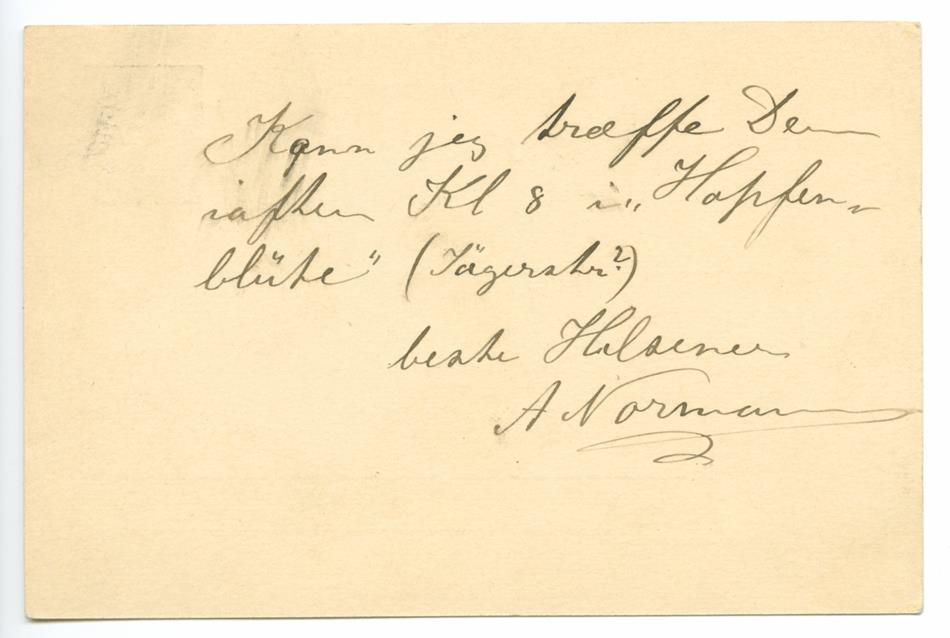 Kann jeg træffe Dem
iaften Kl 8 i „Hopfen-
blüte" (Jägerstr?)
beste Hilsener
A Normann